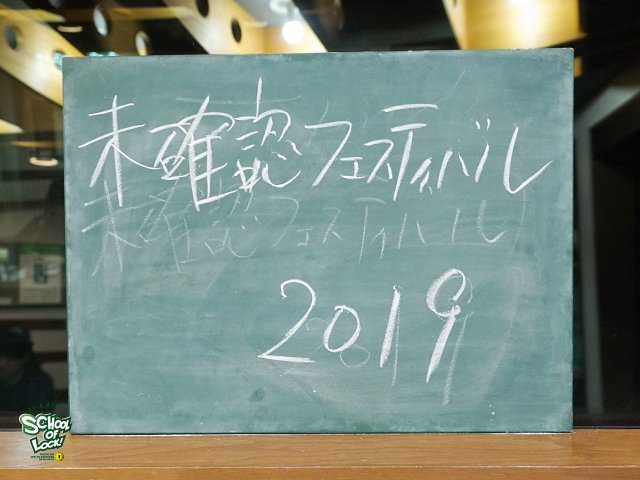 未確認フェスティバル
未確認フェスティバル
2019
SCHOOL
OF
LOCK!